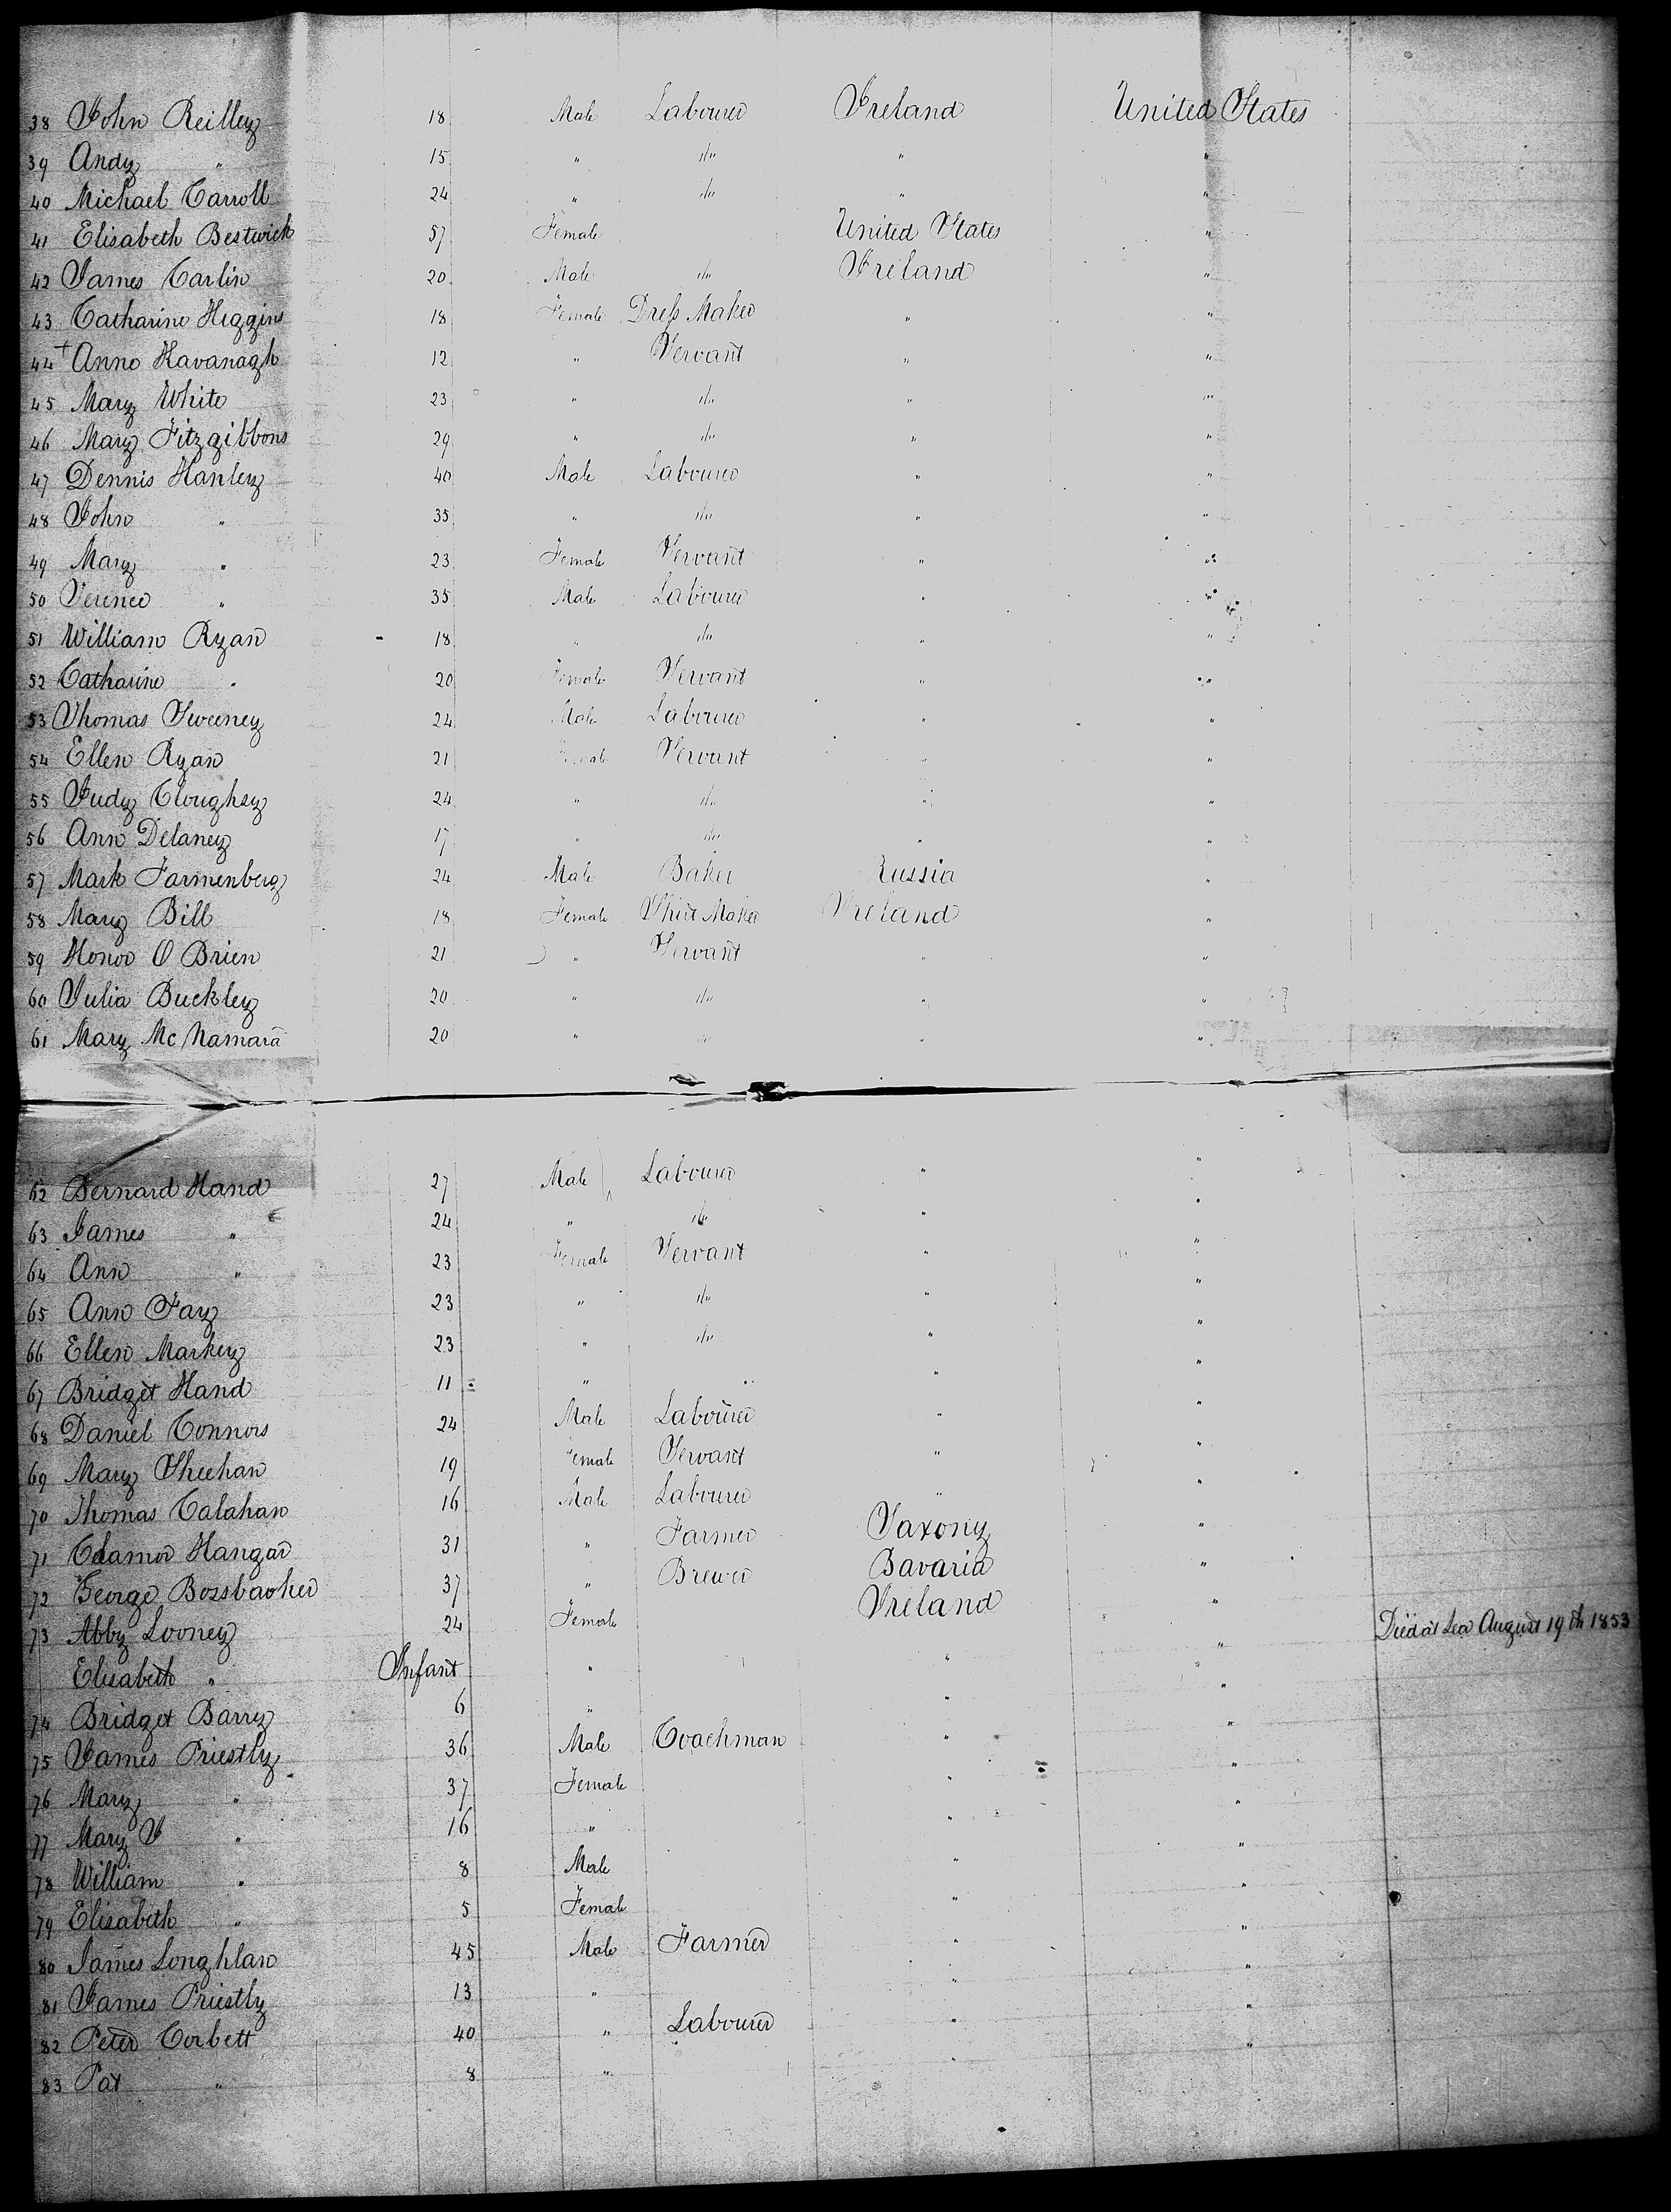 38 John Reilley 18 Male Labourer Ireland United States
39 Andy " 15 " do " "
40 Michael Carroll 24 " do " "
41 Elisabeth Bestwick 57 Female United States "
42 James Carlin 20 Male do Ireland "
43 Catharine Higgins 18 Female Dress Maker " "
44 + Anne Kavanagh 12 " Servant " "
45 Mary White 23 " do " "
46 Mary Fitzgibbons 29 " do " "
47 Dennis Hanley 40 Male Labourer " "
48 John " 35 " do " "
49 Mary " 23 Female Servant " "
50 Terence " 35 Male Labourer " "
51 William Ryan 18 " do " "
52 Catharine " 20 Female Servant " "
53 Thomas Sweeney 24 Male Labourer " "
54 Ellen Ryan 21 Female Servant " "
55 Judy Cloughey 24 " do " "
56 Ann Delaney 17 " do " "
57 Mark Farmenberg 24 Male Baker Russia "
58 Mary Bill 18 Female Shirt Maker Ireland "
59 Honor O Brien 21 " Servant " "
60 Julia Buckley 20 " do " "
61 Mary Mc Namara 20 " do " "
62 Bernard Hand 27 Male Labourer " "
63 James " 24 " do " "
64 Ann " 23 Female Servant " "
65 Ann Fay 23 " do " "
66 Ellen Markey 23 " do " "
67 Bridget Hand 11 " " " "
68 Daniel Connors 24 Male Labourer " "
69 Mary Sheehan 19 Female Servant " "
70 Thomas Calahan 16 Male Labourer " "
71 Hangar 31 " Farmer Saxony "
72 George Bossbacher 37 " Brewer Bavaria "
73 Abby Looney 24 Female Ireland " Died at Sea August 19th 1853
Elisabeth " Infant " " "
74 Bridget Barry 6 " " "
75 James Priestly 36 Male Coachman " "
76 Mary " 37 Female " "
77 Mary J " 16 " " "
78 William " 8 Male " "
79 Elisabeth " 5 Female " "
80 James Longhlan 45 Male Farmer " "
81 James Priestly 13 " " "
82 Peter Corbett 40 " Labourer " "
83 Pat " 8 " " "